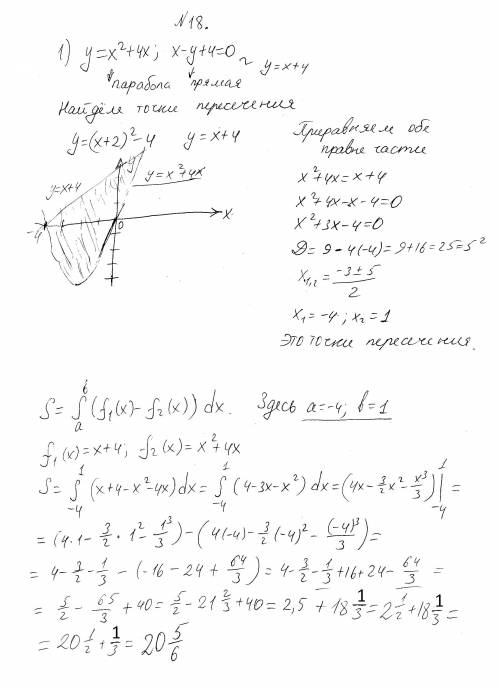 №18.
1) y=x²+4x; x-y+4=0 ~ y=x+4
парабола прямая
Найдём точки пересечения
y=(x+2)²-4 y=x+4
y=x+4
y
y=x²+4x
-4
0
x
Приравняем обе
правые части
x²+4x=x+4
x²+4x-x-4=0
x²+3x-4=0
D=9-4(-4)=9+16=25=5²
x₁,₂=(-3±5)/2
x₁=-4; x₂=1
Это точки пересечения.
S=∫ₐᵇ(f₁(x)-f₂(x))dx. Здесь a=-4; b=1
f₁(x)=x+4; f₂(x)=x²+4x
S=∫₋₄¹(x+4-x²-4x)dx=∫₋₄¹(4-3x-x²)dx=(4x-3/2x²-x³/3)|₋₄¹=
=(4·1-3/2·1²-1³/3)-(4(-4)-3/2(-4)²-(-4)³/3)=
=4-3/2-1/3-(-16-24+64/3)=4-3/2-1/3+16+24-64/3=
=5/2-65/3+40=5/2-21 2/3+40=2,5+18 1/3=2 1/2+18 1/3=
=20 1/2+1/3=20 5/6